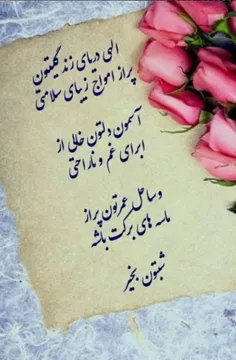 الهی دریای زندگیتون
پراز امواج زیبای سلامتی
آسمون دلتون خالی از
ابرای غم و ناراحتی
وساحل عمرتون پراز
ماسه های برکت باشه
شبتون بخیر